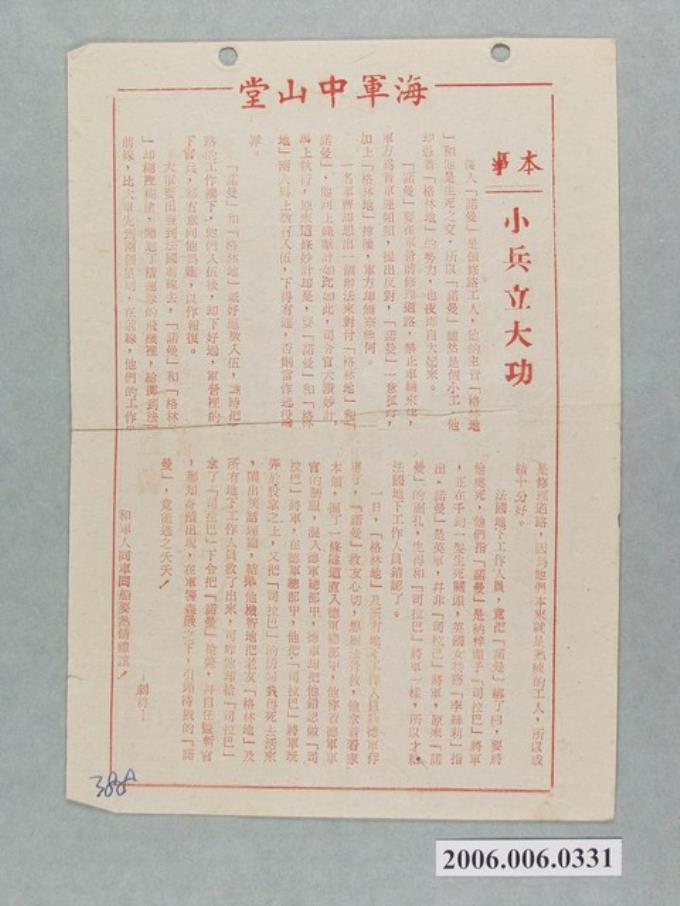 海軍中山堂
本事
小兵立大功
矮人「諾曼」是個修路工人，他的主管「格林地
」和他是生死之交，所以「諾曼」雖然是個小工，他
却仗着「格林地」的勢力，也夜郎自大起來。
「諾曼」要在軍營前修理道路，禁止車輛來往，
軍方爲着軍運頻頻，提出反對，「諾曼」一意孤行，
加上「格林地」撑腰，軍方却無奈他何。
一名軍曹却想出一個辦法來對付「格林地」和「
諾曼」，他向上級獻計如此如此，司令官大讚妙計，
馬上執行，原來這條妙計却是，要「諾曼」和「格林
地」兩人馬上徵召入伍，下得有違，否則當作逃役論
罪。
「諾曼」和「格林地」祇好地放入伍，這時把
路的工作擱下，他們入伍後，却下好過，軍營裡的
下官兵，都有意向他爲難，以作報復。
大軍要出發到法國前線去，「諾曼」和「格林
」却糊裡糊塗，闖進了精運隊的飛機裡，給擲到法
前線，比大軍先到兩個星期，在前線，他們的工作
是修理道路，因爲他們本來就是熟練的工人，所以成
績十分好。
法國地下工作人員，竟把「諾曼」綁了回，要將
他處死，他們指「諾曼」是納粹份子「司拉巴」將軍
，正在千鈞一髮生死關頭，英國女特務「李絲莉」指
出，諾曼」是英軍，幷非「司拉巴」將軍，原來「諾
曼」的面孔，生得和「司拉巴」將軍一樣，所以才給
法國地下工作人員錯認了。
一日，「格林地」及所有地下工作人員給德軍俘
虜了，「諾曼」救友心切，想辦法營救，他拿着看家
本領，掘了一條隧道直入德軍總部中，他穿着德軍軍
官的制服，混入德軍總部中，德軍却把他錯認做「司
拉巴」將軍，在德軍總部中，他把「司拉巴」將軍玩
弄於股掌之上，又把「司拉巴」的情婦我得死去活來
，鬧出笑話連篇，結果他機智地把老友「格林地」及
所有地下工作人員救了出來，可咋他却給「司拉巴」
拿了「司拉巴」下令把「諾曼」槍斃，幷自任監斬官
，那知奇蹟出現，在軍警森嚴之下，引頸待戮的「諾
曼」，竟能逃之夭夭！
—劇終—
和軍人同車同船要熱情禮讓！
388
2006.006.0331